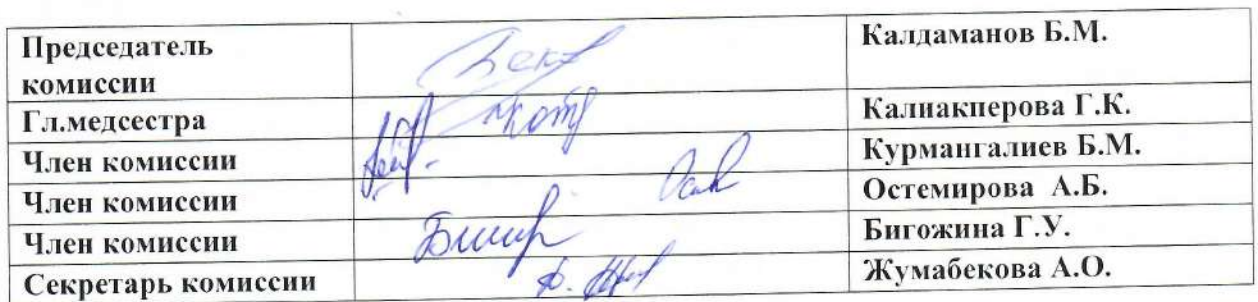 Председатель комиссии Калдаманов Б.М.
Гл.медсестра Калиакперова Г.К.
Член комиссии Курмангалиев Б.М.
Член комиссии Остемирова А.Б.
Член комиссии Бигожина Г.У.
Секретарь комиссии Жумабекова А.О.